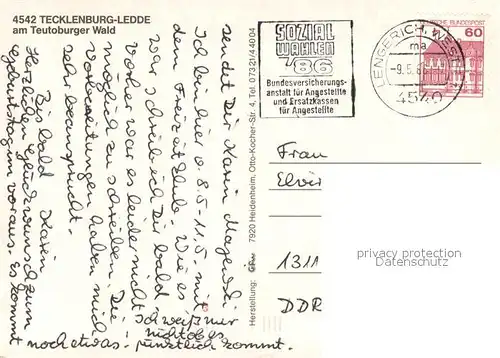 4542 TECKLENBURG-LEDDE
am Teutoburger Wald
Herzlichen Glückwunsch zum
Geburtstag im voraus. Es kommt
noch etwas. Ich weiß nur
nicht ob es
pünktlich kommt.
Bis bald Karin
sendet Dir Karin
Ich bin hier v. 8.5-11.5. mit
dem Freizeitclub. Wie es
war schreib ich Dir bald
vorher war es leider nicht
möglich zu schreiben. Die
Vorbereitungen haben mich
sehr beansprucht.
Herstellung: 7920 Heidenheim, Otto-Kocher-Str. 4, Tel. 07321/44004
SOZIAL
WAHLEN
'86
Bundesversicherungs-
anstalt für Angestellte
und Ersatzkassen
für Angestellte
LENGERICH, WESTF
ma
-9.5.86
4540
DEUTSCHE BUNDESPOST
60
Frau
Elvir
131
DDR
privacy protection
oldthing.de